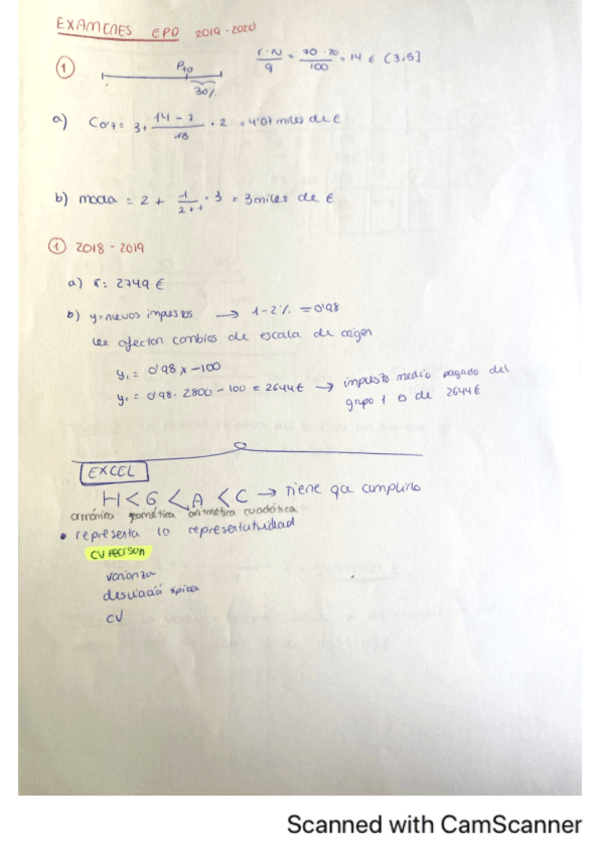 EXAMENES EPD 2019-2020
① P70 r·N/q = 70·20/100 = 14 ∈ (3,5]
30%
a) C0'7 = 3 + 14-7/13 · 2 = 4'07 miles de €
b) moda = 2 + 1/2+1 · 3 = 3 miles de €
① 2018-2019
a) x̄: 2749 €
b) y=nuevos impuestos → 1-2% = 0'98
Le afectan cambios de escala de origen
y₁ = 0'98 x - 100
y₁ = 0'98 · 2800 - 100 = 2644€ → impuesto medio pagado del
grupo 1 es de 2644€
EXCEL
H < G < A < C → tiene que cumplirlo
armónica geométrica aritmética cuadrática
• representa la representatividad
CV PEARSON
varianza
desviación típica
CV
Scanned with CamScanner